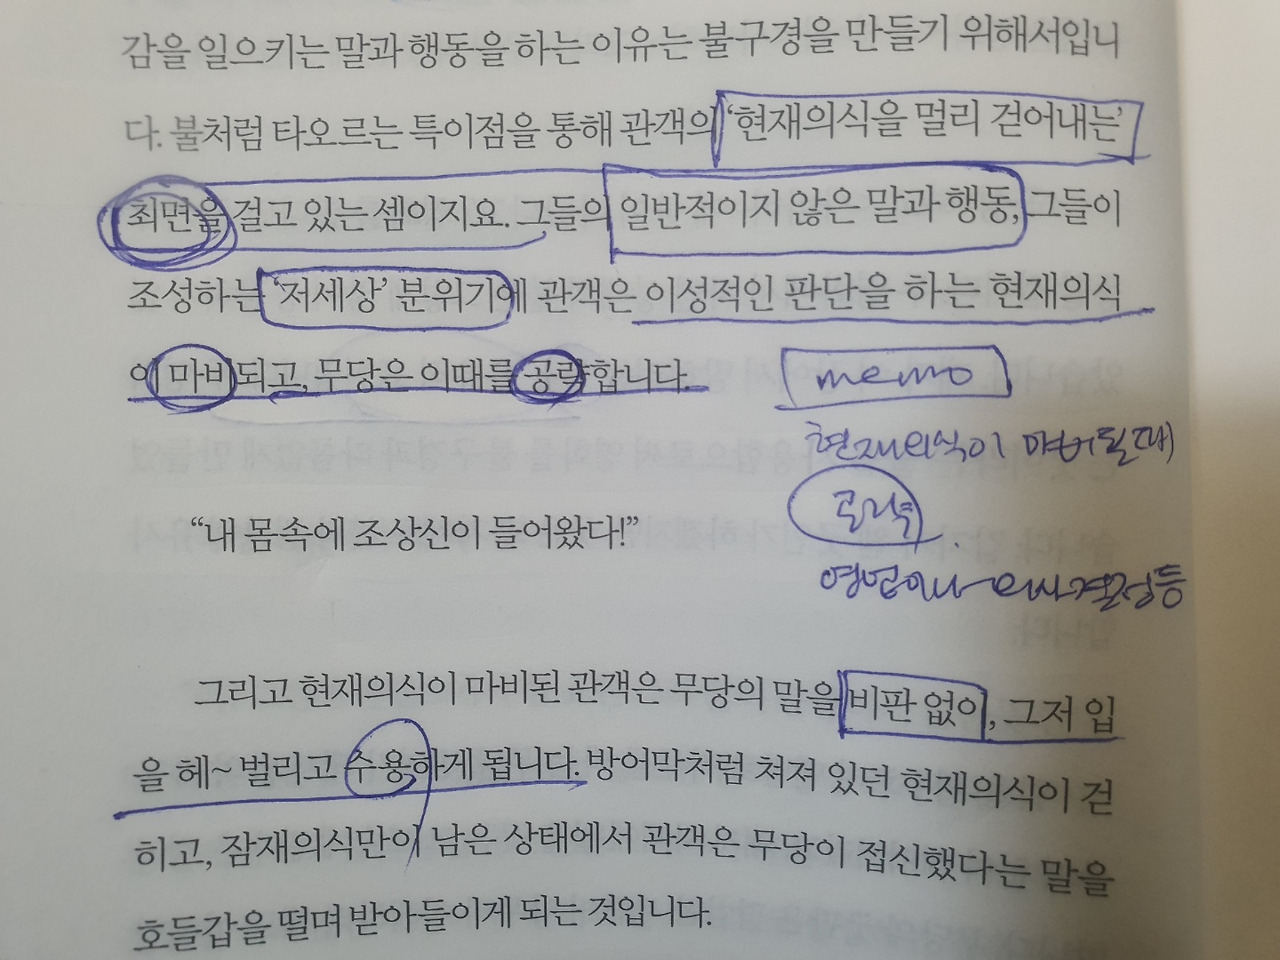 감을 일으키는 말과 행동을 하는 이유는 불구경을 만들기 위해서입니
다. 불처럼 타오르는 특이점을 통해 관객의 ‘현재의식을 멀리 걷어내는’
최면을 걸고 있는 셈이지요. 그들의 일반적이지 않은 말과 행동, 그들이
조성하는 ‘저세상’ 분위기에 관객은 이성적인 판단을 하는 현재의식
이 마비되고, 무당은 이때를 공략합니다.
memo
현재의식이 마비될 때
공략
영업이나 의사결정 등
“내 몸속에 조상신이 들어왔다!”
그리고 현재의식이 마비된 관객은 무당의 말을 비판 없이, 그저 입
을 헤~ 벌리고 수용하게 됩니다. 방어막처럼 쳐져 있던 현재의식이 걷
히고, 잠재의식만이 남은 상태에서 관객은 무당이 접신했다는 말을
호들갑을 떨며 받아들이게 되는 것입니다.